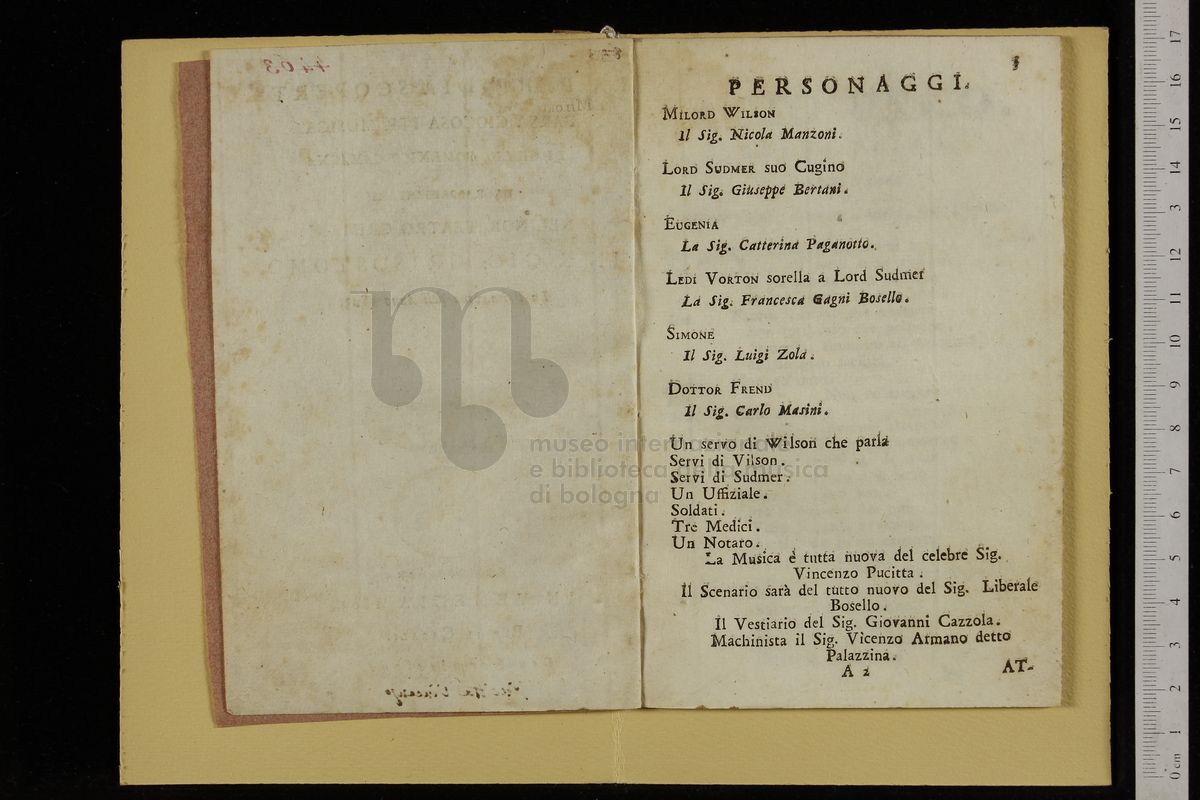 3
PERSONAGGI.
MILORD WILSON
Il Sig. Nicola Manzoni.
LORD SUDMER suo Cugino
Il Sig. Giuseppe Bertani.
EUGENIA
La Sig. Catterina Paganotto.
LEDI VORTON sorella a Lord Sudmer
La Sig. Francesca Gagni Bosello.
SIMONE
Il Sig. Luigi Zola.
DOTTOR FREND
Il Sig. Carlo Masini.
Un servo di Wilson che parla
Servi di Vilson.
Servi di Sudmer.
Un Uffiziale.
Soldati.
Tre Medici.
Un Notaro.
La Musica è tutta nuova del celebre Sig.
Vincenzo Pucitta.
Il Scenario sarà del tutto nuovo del Sig. Liberale
Bosello.
Il Vestiario del Sig. Giovanni Cazzola.
Machinista il Sig. Vicenzo Armano detto
Palazzina.
A 2
AT-
museo internazionale
e biblioteca della musica
di bologna
0 cm 1 2 3 4 5 6 7 8 9 10 11 12 13 14 15 16 17